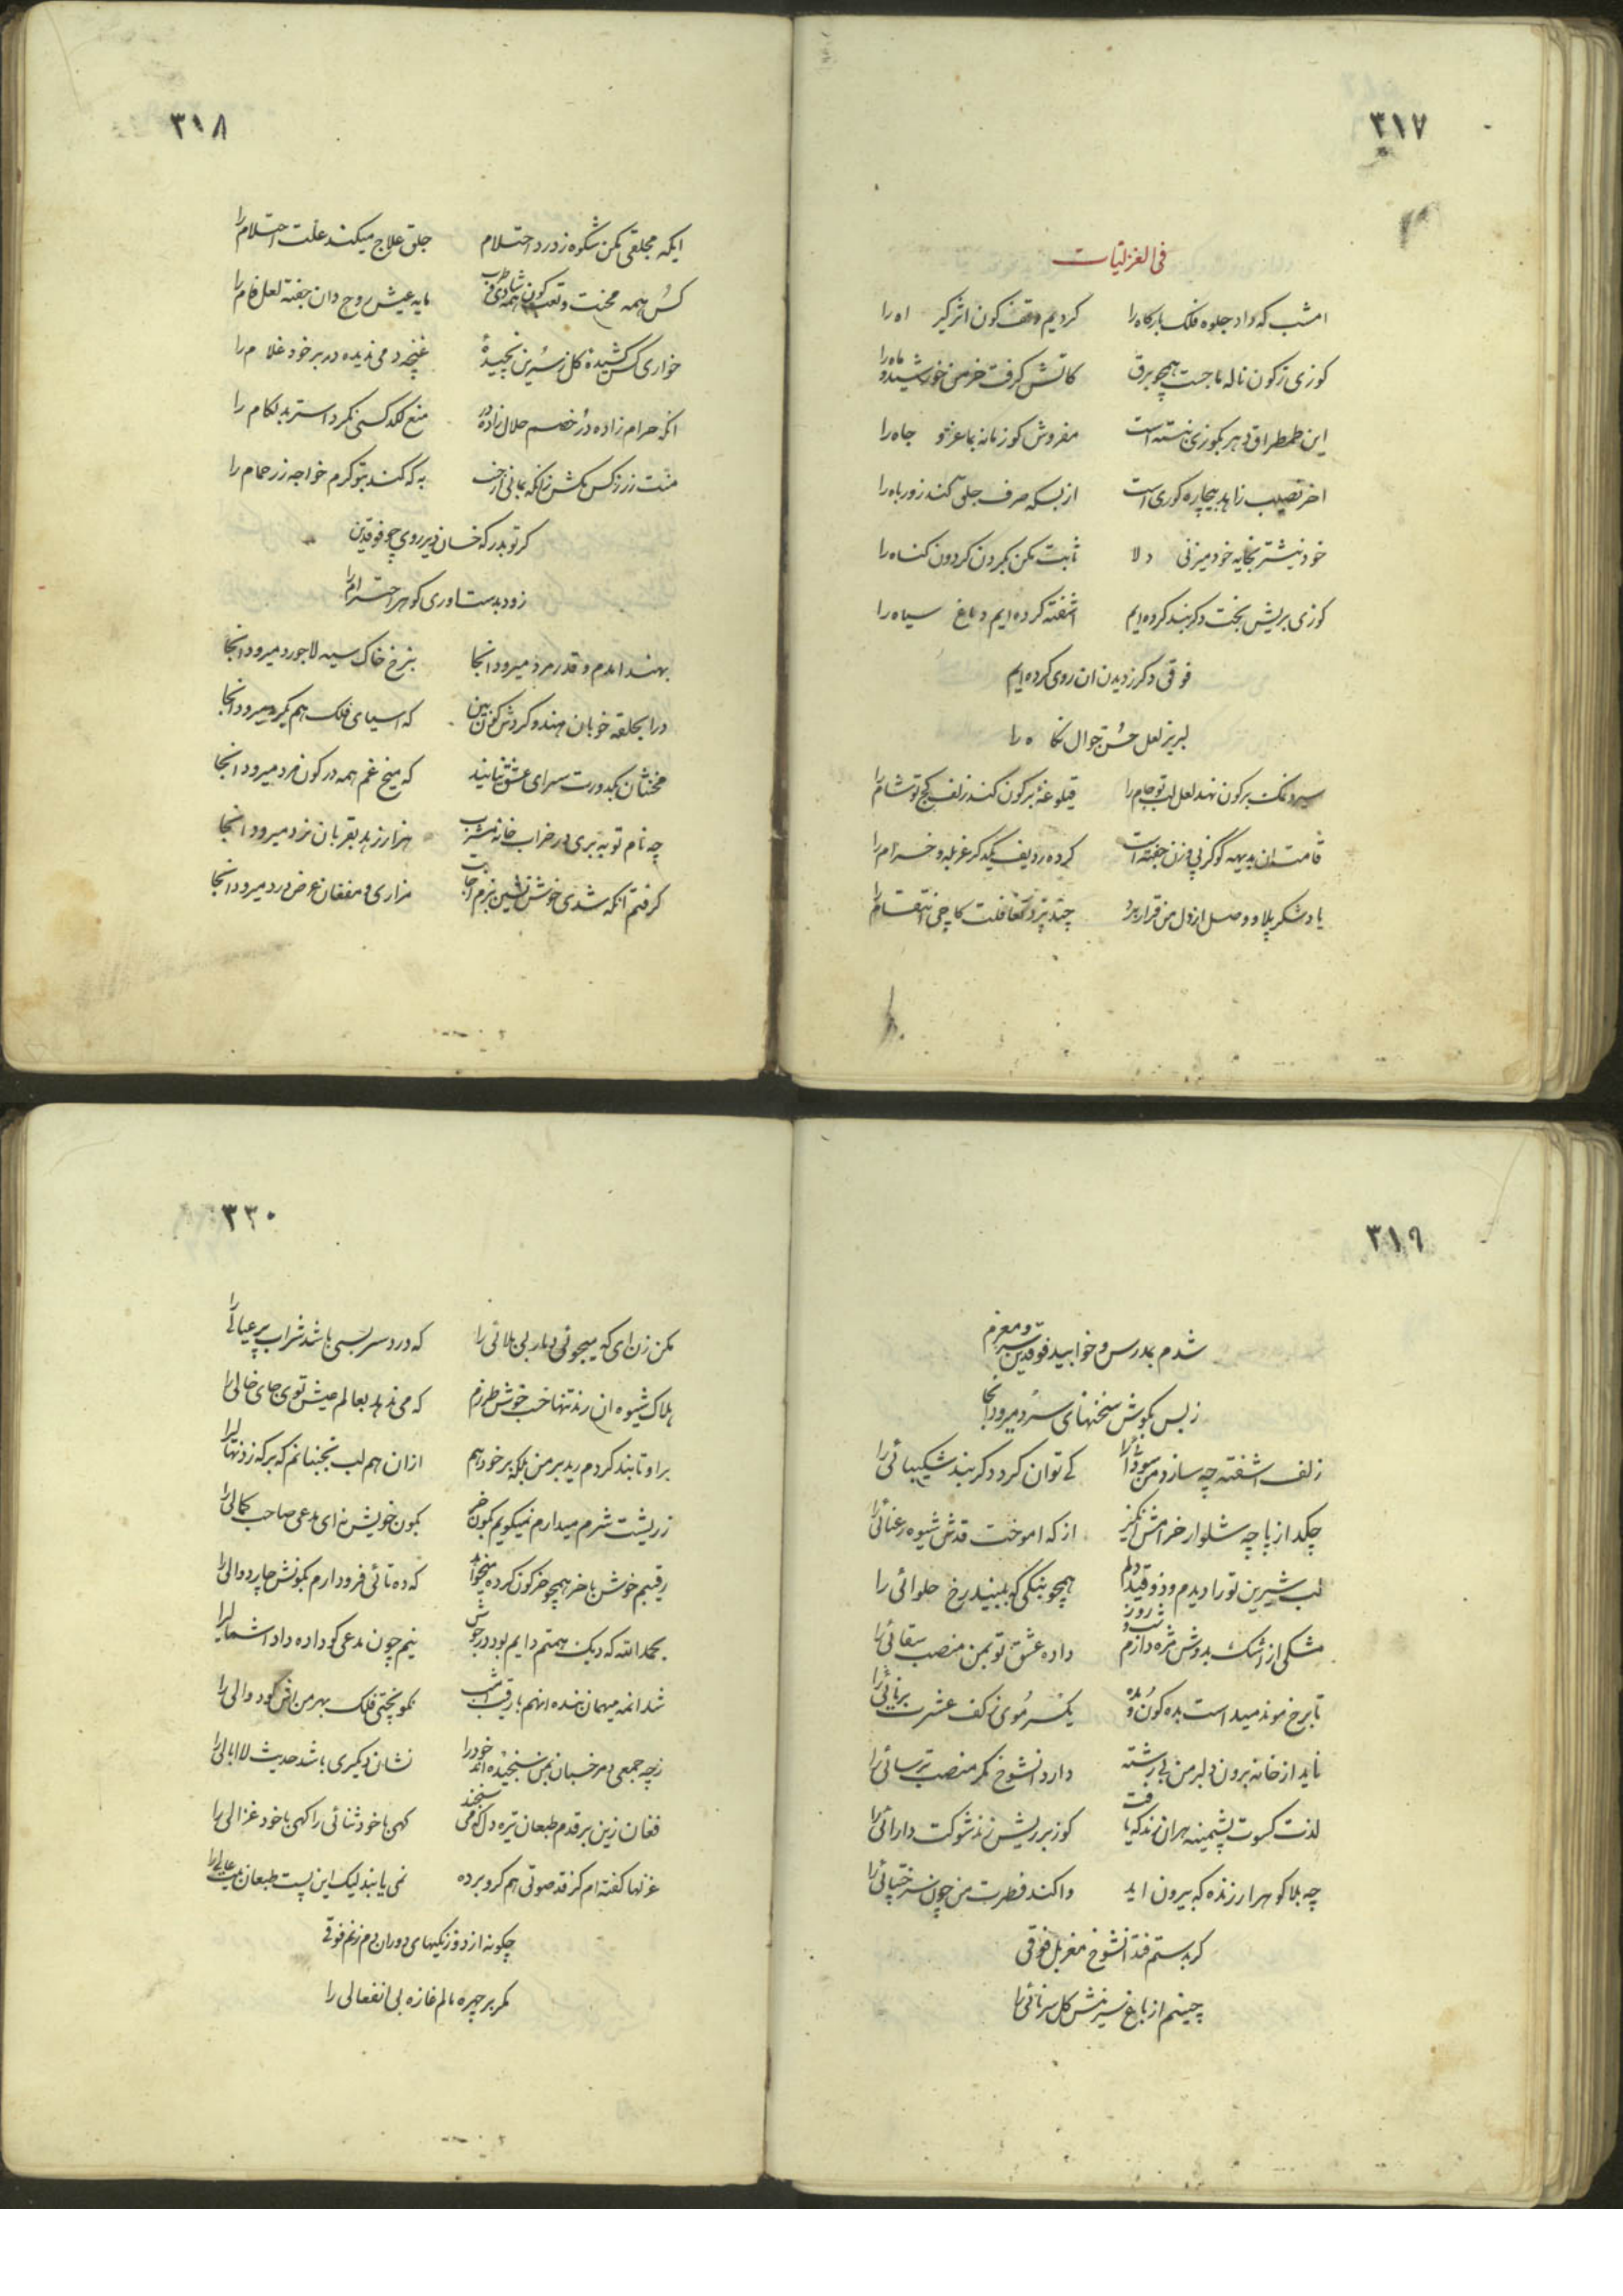 ۳۱۷
فی الغزلیات
امشب که داد جلوه فلک بارگاه را کردیم وقف کون اثر کیر اه را
کوزی ز کون ناله ما جست همچو برق کاتش گرفت خرمن خورشید و ماه را
این طمطراق دهر بکوزی نبسته است مفروش کوز مانه بما عز و جاه را
اخر نصیب زاهد بیچاره کوری است از بسکه صرف جلق کند زور باه را
خود نیشتر بخایه خود میزنی دلا ثابت مکن بکردن کردون کناه را
کوزی بریش بخت دکر بند کرده ایم اشفته کرده ایم دماغ سیاه را
فوقی دکر ز دیدن ان روی کرده ایم
لبریز لعل حسن جوال نکاه را
سپرد نمک برکون نهد لعل لب تو جام را قیلوغه بر کون کند زلف کج تو شام را
قامت ان بدیهه کو کز پی وزن جفته است کرده ردیف یکدکر غربله و خرام را
یاد شکر پلاو وصل از دل من قرار برد چند پزد تغافلت کاچی انتقام را
۳۱۸
ایکه مجلقی مکن شکوه ز درد احتلام جلق علاج میکند علت احتلام را
کس همه محنت و تعب کون همه شادی و طرب مایه عیش روح دان جفته لعل فام را
خواری کس کشیدهٔ کل ز سرین نچیدهٔ غنچه دمی ندیده در بر خود غلام را
انکه حرام زاده در خصم حلال زادهٔ منع لکد کسی نکرد استر بد لکام را
منت زر ز کس مکش زانکه بمانی از به که کند بتو کرم خواجه زر حمام را
کر تو بدر که خسان دیر روی چو فوقدین
زود بدست اوری کوهر احترام را
بهند امدم و قدر مرد میرود انجا بنرخ خاک سیه لاجورد میرود انجا
درا بحلقه خوبان هند و کردش کون بین که اسیای فلک هم یکرد میرود انجا
مخنثان بکدورت سرای عشق نیایند که میخ غم همه در کون مرد میرود انجا
چه نام توبه بری در خراب خانه مشرب هزار زهد بقربان نرد میرود انجا
کرفتم آنکه شدی خوش نشین بزم اجابت هزاری و مفغان عوض درد میرود انجا
۳۱۹
شدم بمدرس و خوابید فوقدین سر و مغزم
ز بس بکوش سخنهای سرد میرود انجا
زلف اشفته چه سازد من سودائی را کی توان کرد دکر بند شکیبائی را
چکد از پاچه شلوار خرامش از که اموخت قدش شیوه رعنائی را
لب شیرین تو را دیدم و ذوقید دلم همچو بنکی که ببیند رخ حلوائی را
مشکی از اشک بدوش مژه دارم شب و روز داده عشق تو بمن منصب سقائی را
تا برخ مو ندمید است بده کون و بده یکسر موی ز کف عشرت برنائی را
ناید از خانه برون دلبر من بی رشته دارد انشوخ مکر منصب ترسائی را
لذت کسوت پشمینه هران رند که یافت کوز بر ریش زند شوکت دارائی را
چه بلا کوهر ارزنده که بیرون اید واکند فطرت من چون سر ختپائی را
کر بدستم فتد انشوخ مغربل فوقی
چینم از باغ سرینش کل سرنائی را
۳۳۰
مکن زن ای که میجوئی دیار بی بلائی را که درد سر بسی باشد شراب پر عیالی را
هلاک شیوه ان رند تنها خسب خوش طرزم که می ندهد بعالم عیش توی جای خالی را
برا و تا بند کردم رید بر من بلکه بر خود هم ازان هم لب نجنبانم که بر که زد نهالی را
ز ریشت شرم میدارم نمیکویم بکون خر بکون خویش نه ای مدعی صاحب کمالی را
رقیبم خوش با خر همچو خر کون کرده میخواند که ده تائی فرو دارم بکونش چارد والی را
بحمدالله که دیک همتم دایم بود در جوش نیم چون مدعی کو داده داد اشتمالی را
شد انمه میهمان بنده انهم با رقیب امشب نکو پختی فلک بهر من اش کود والی را
ز چه جمعی در خسبان بمن سنجیده اند خود را نشان دیکری باشد حدیث لاابالی را
فغان زین بر قدم طبعان تیره دل که می سنجند کهی با خود ثنائی را کهی با خود غزالی را
غزلها کفته ام کز قد صوتی هم کرو برده نمی یابند لیک این پست طبعان بیت عالی را
چکونه از دو زنکیهای دوران دم زنم فوقی
مکر بر چهره مالم غازه بی انفعالی را